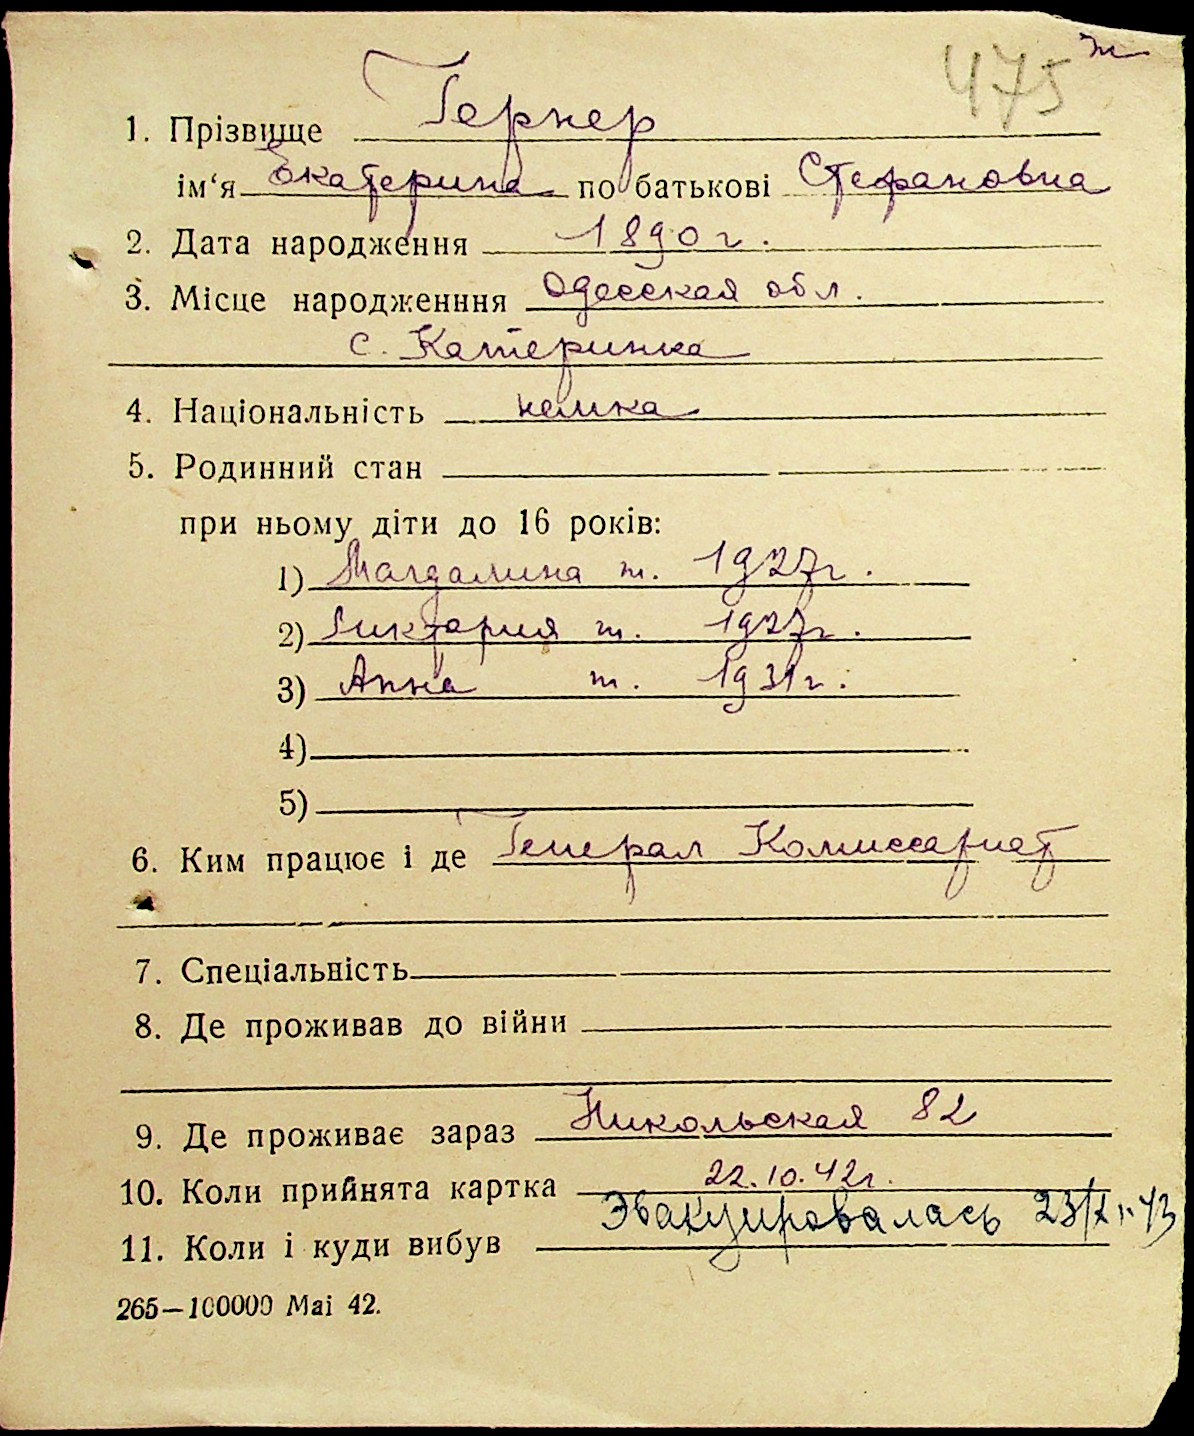 475 ж
1. Прізвище Гернер
ім‘я Екатерина по батькові Стефановна
2. Дата народження 1890 г.
3. Місце народженння Одесская обл.
с. Катеринка
4. Національність немка
5. Родинний стан
при ньому діти до 16 років:
1) Магдалина ж. 1927 г.
2) Виктария ж. 1927 г.
3) Анна ж. 1931 г.
4)
5)
6. Ким працює і де Генерал Комиссариат
7. Спеціальність
8. Де проживав до війни
9. Де проживає зараз Никольская 82
10. Коли прийнята картка 22.10.42 г.
11. Коли і куди вибув Эвакуировалась 23/X г. 43
265—100000 Mai 42.